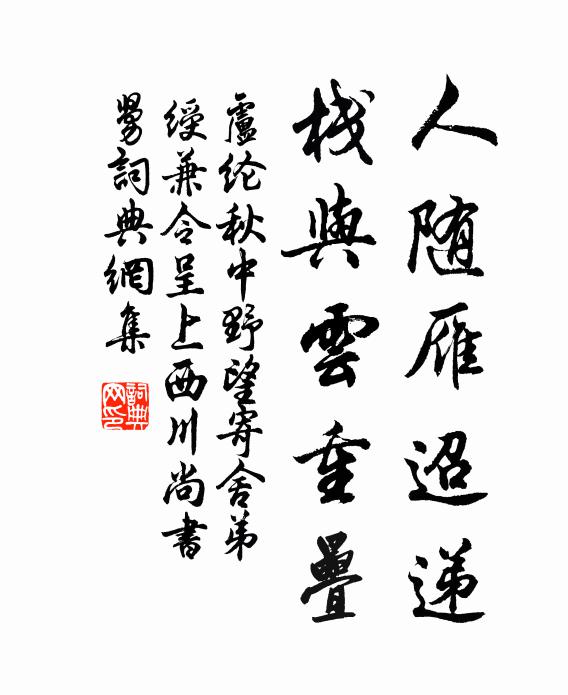 人随雁迢递
栈與雲重疊
盧纶秋中野望寄舍弟
綬兼令呈上西川尚書
舅詞典網集
詞典
网印